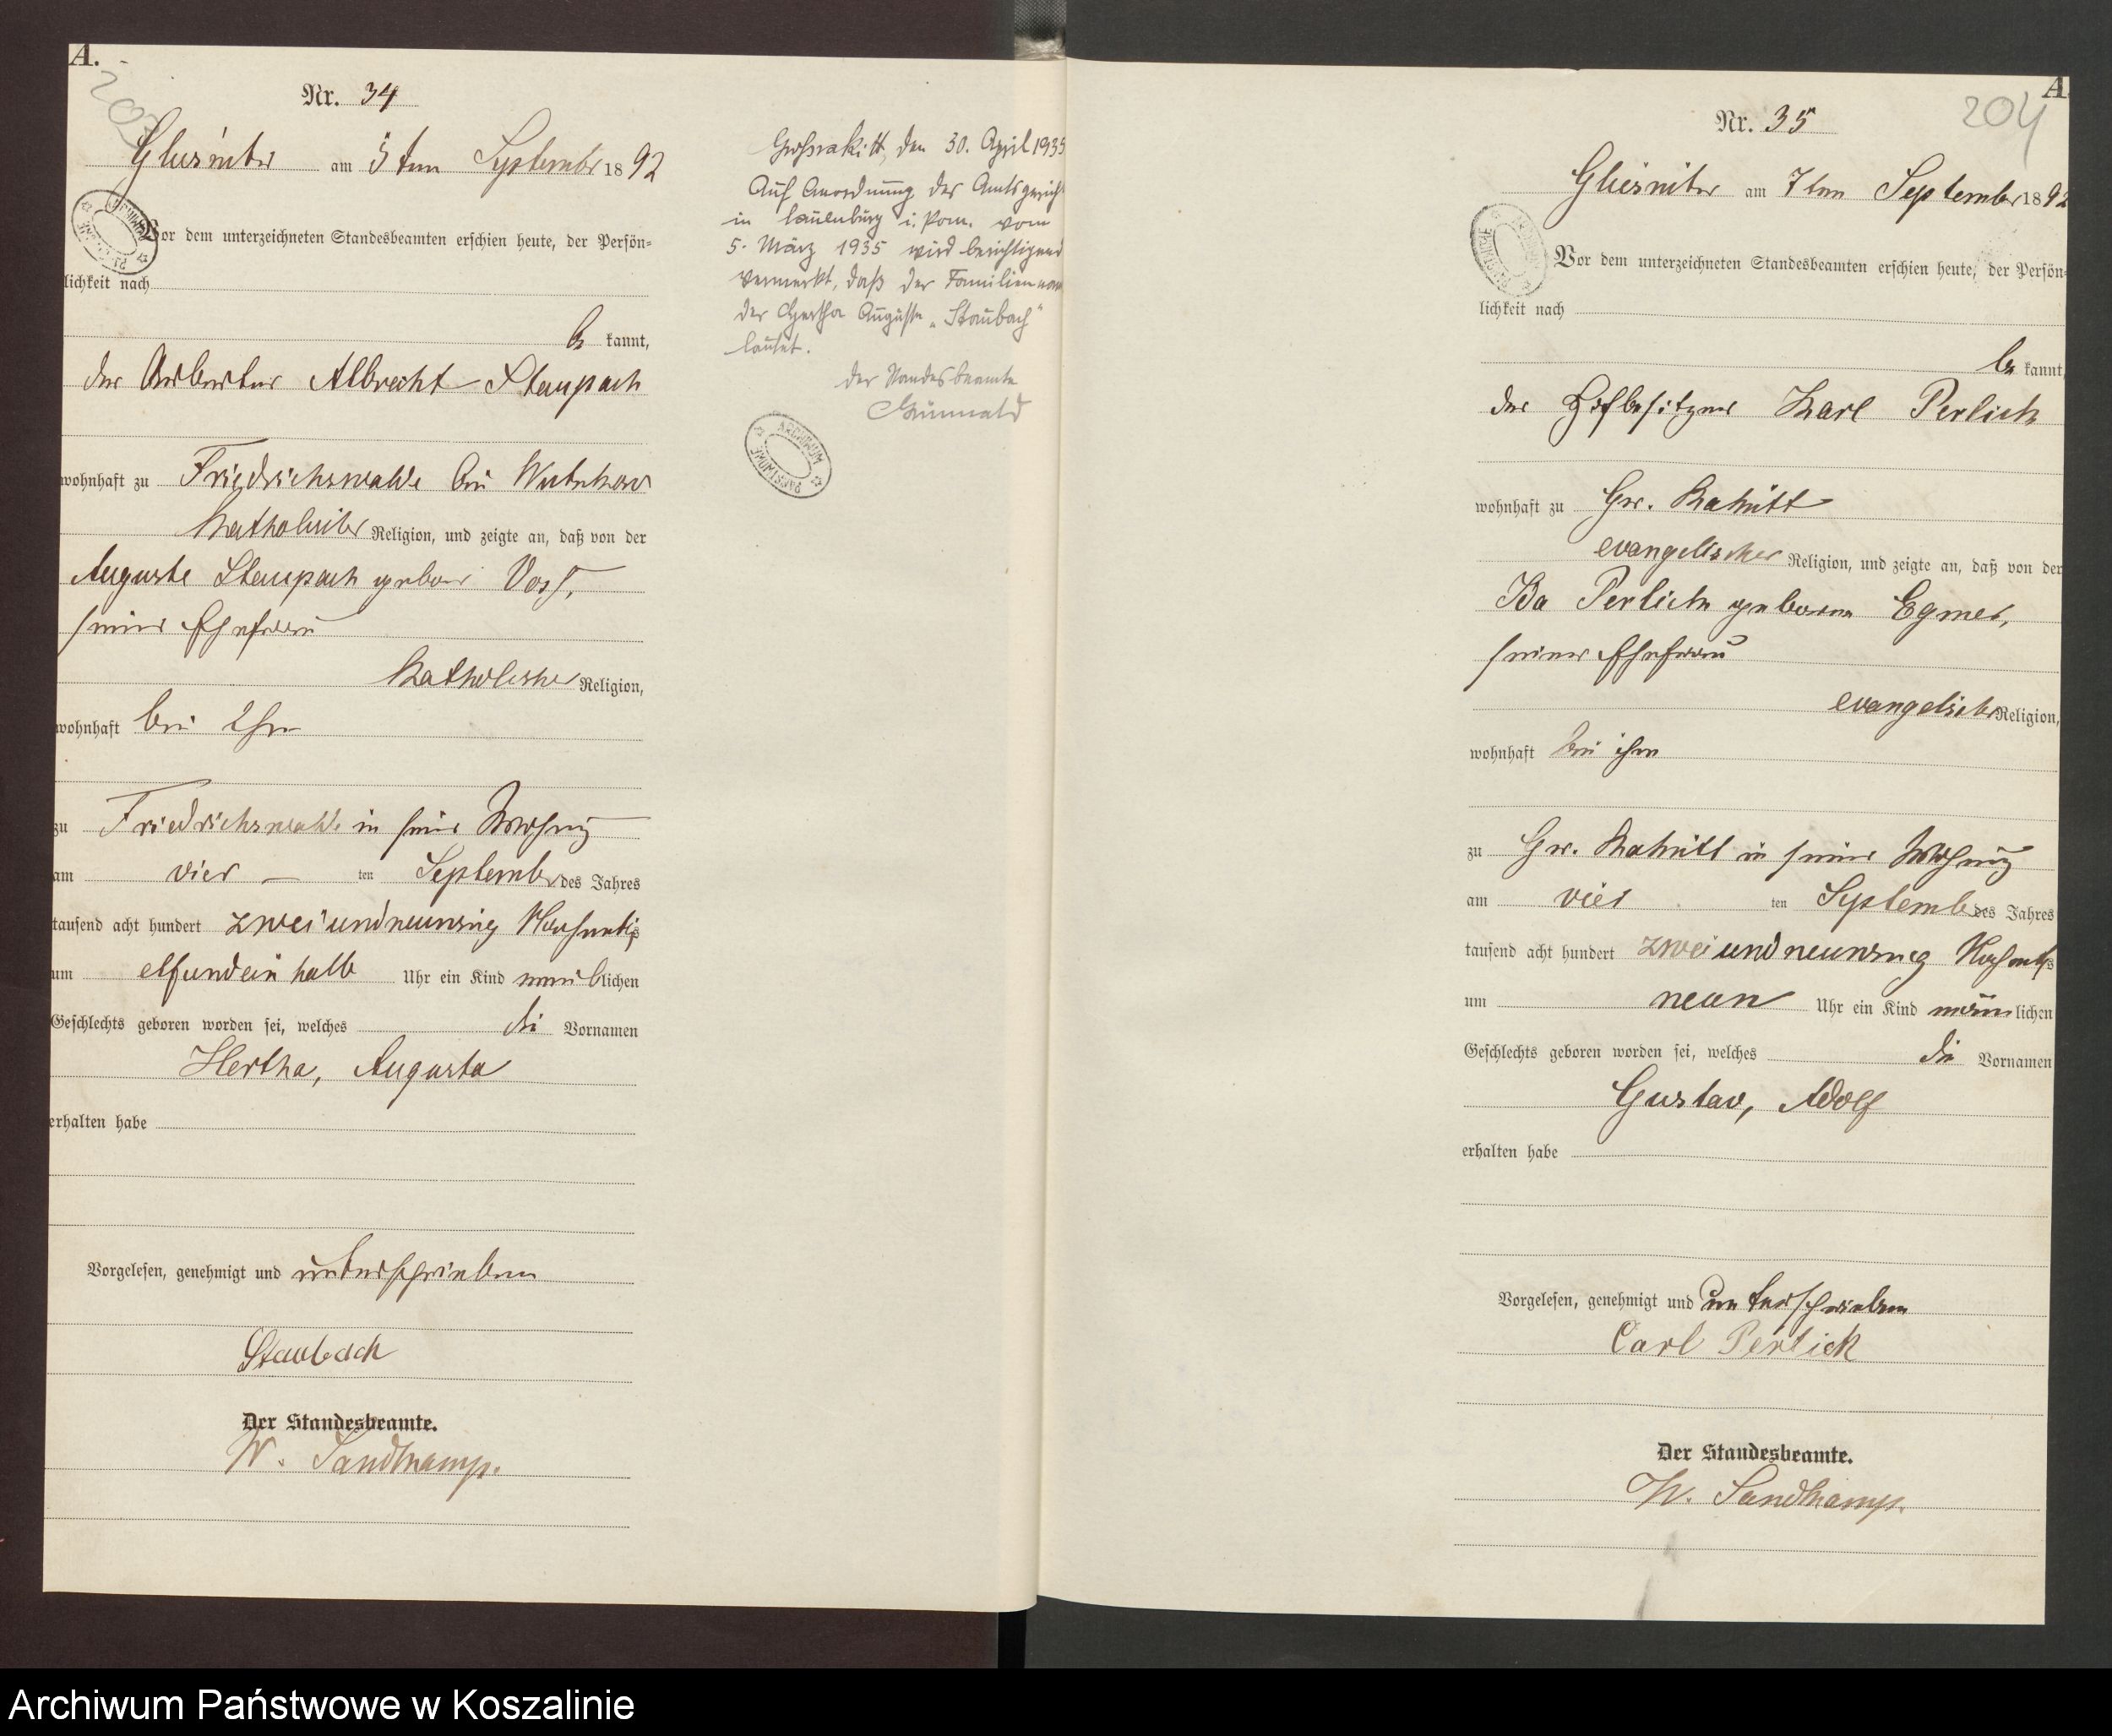 A.
203
Nr. 34
am 5ten September 1892
ARCHIWUM PAŃSTWOWE
Vor dem unterzeichneten Standesbeamten erschien heute, der Persön=
lichkeit nach
be kannt,
der Arbeiter Albrecht Staupach
wohnhaft zu Friedrichswalde bei
Religion, und zeigte an, daß von der
Auguste Staupach geboren Voss,
seiner Ehefrau
katholischer Religion,
wohnhaft bei Ihm
zu Friedrichswalde in seiner Wohnung
am vier ten September des Jahres
tausend acht hundert zweiundneunzig Nachmittags
um elfundein halb Uhr ein Kind weiblichen
Geschlechts geboren worden sei, welches die Vornamen
Hertha, Augusta
erhalten habe
Vorgelesen, genehmigt und unterschrieben
Staubach
Der Standesbeamte.
W. Sandkamp.
Großrakitt, den 30. April 1935
Auf Anordnung des Amtsgerich
in Lauenburg i. Pom. vom
5. März 1935 wird berichtigend
vermerkt, daß der Familienname
der Hertha Auguste „Staubach“
lautet.
Der Standesbeamte
Grünwald
ARCHIWUM PAŃSTWOWE
A
204
Nr. 35
am 7ten September 1892
ARCHIWUM PAŃSTWOWE
Vor dem unterzeichneten Standesbeamten erschien heute, der Persön=
lichkeit nach
be kannt,
der Hofbesitzer Karl Perlick
wohnhaft zu Gr. Rakitt
evangelischer Religion, und zeigte an, daß von der
Ida Perlick geborene
seiner Ehefrau
evangelischer Religion,
wohnhaft bei ihm
zu Gr. Rakitt in seiner Wohnung
am vier ten September des Jahres
tausend acht hundert zweiundneunzig Nachmittags
um neun Uhr ein Kind männlichen
Geschlechts geboren worden sei, welches die Vornamen
Gustav, Adolf
erhalten habe
Vorgelesen, genehmigt und unterschrieben
Carl Perlick
Der Standesbeamte.
W. Sandkamp.
Archiwum Państwowe w Koszalinie